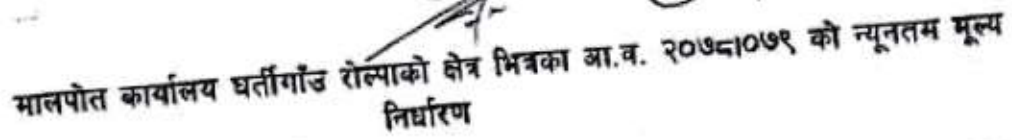 मालपोत कार्यालय घर्तीगाँउ रोल्पाको क्षेत्र भित्रका आ.व. २०७८।०७९ को न्यूनतम मूल्य
निर्धारण